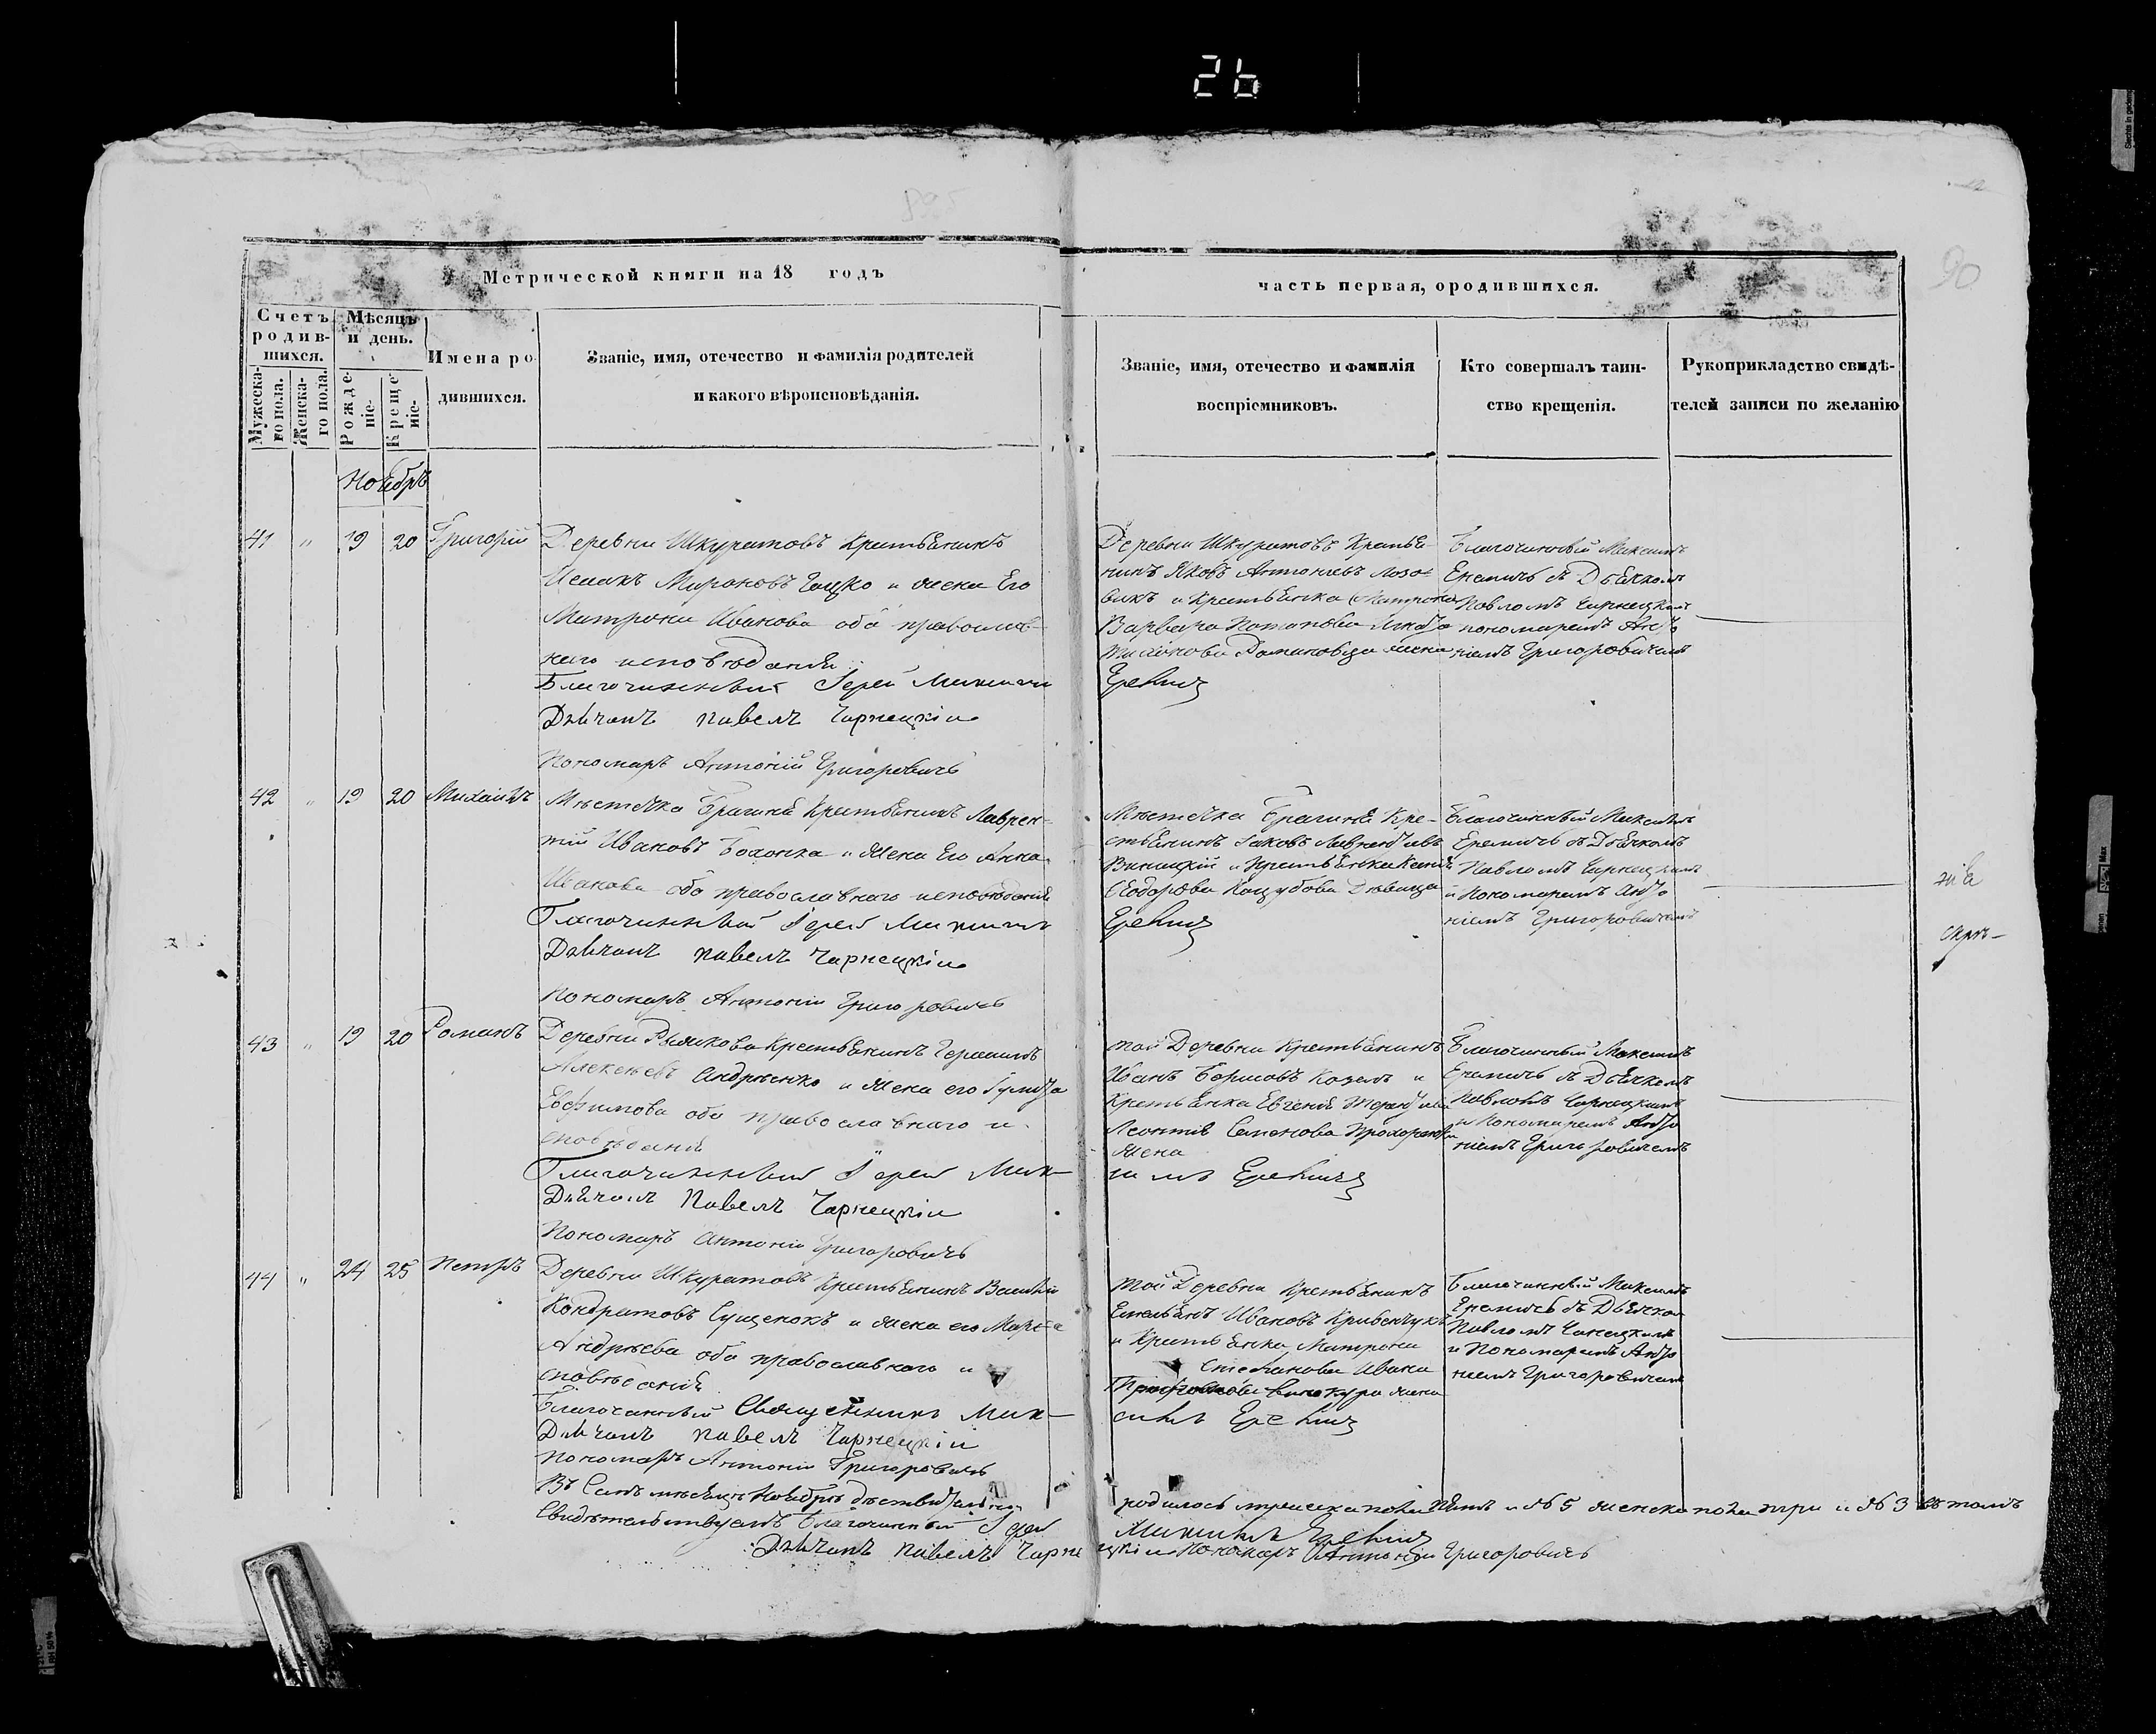 26
90
Метрической книги на 18 годъ
часть первая, ородившихся.
Счетъ родив-шихся.
Мужеска-го пола.
Женска-го пола.
Мѣсяцъ и день.
Рожде-ніе.
Креще-ніе.
Имена ро-
дившихся.
Званіе, имя, отечество и фамилія родителей
и какого вѣроисповѣданія.
Званіе, имя, отечество и фамилія
воспріемниковъ.
Кто совершалъ таин-
ство крещенія.
Рукоприкладство свидѣ-
телей записи по желанію
Ноябрь
41 " 19 20 Григорій
Деревни Шкуратовъ Крестьянинъ
Исаакъ Мироновъ и жена Его
Матрона Иванова оба православ-
наго исповѣданія
Благочинный Іерей Максимъ
Дьячокъ Павелъ Чарнецкій
Пономарь Антоній Григоровичъ
Деревни Шкуратовъ Крестья-
нинъ Яковъ Антоніевъ Лозо-
викъ и Крестьянка
Варвара
жена
Еремичъ
Благочинный Максимъ
Еремичъ съ Дьячкомъ
Павломъ Чарнецкимъ
пономаремъ Анто
ніемъ Григоровичемъ
42 " 19 20 Михаилъ
Мѣстечка Брагиня Крестьянинъ Лаврен-
тій Ивановъ Бохонка и жена Его Анна
Исакова оба православнаго исповѣданія
Благочинный Іерей Максимъ
Дьячокъ Павелъ Чарнецкій
Пономарь Антоній Григоровичъ
Мѣстечка Брагиня Кре-
стьянинъ Іаковъ Лаврентіевъ
Виницкій и Крестьянка
Ѳеодорова Коцубова Дѣвица
Еремичъ
Благочинный Максимъ
Еремичъ съ Дьячкомъ
Павломъ Чарнецкимъ
и Пономаремъ Анто
ніемъ Григоровичемъ
43 " 19 20 Романъ
Деревни Рыжкова Крестьянинъ Герасимъ
Алексѣевъ Андрѣенко и жена его
Евфимова оба православнаго и-
сповѣданія
Благочинный Іерей Мак-
Дьячокъ Павелъ Чарнецкій
Пономарь Антоній Григоровичъ
той Деревни Крестьянинъ
Иванъ Борисовъ Козелъ и
Крестьянка Евгенія
Леонтія Семенова
жена
симъ Еремичъ
Благочинный Максимъ
Еремичъ съ Дьячкомъ
Павломъ Чарнецкимъ
и Пономаремъ Анто
ніемъ Григоровичемъ
44 " 24 25 Петръ
Деревни Шкуратовъ Крестьянинъ Василій
Кондратовъ Сущенокъ и жена его Марѳа
Андрѣева оба православнаго и
сповѣданія
Благочинный Священникъ Мак-
Дьячокъ Павелъ Чарнецкій
Пономарь Антоній Григоровичъ
той Деревни Крестьянинъ
Емельянъ Ивановъ Кривенчукъ
и Крестьянка Матрона
Степанова Ивана
Винокура жена
симъ Еремичъ
Благочинный Максимъ
Еремичъ съ Дьячком
Павломъ Чанецкимъ
и Пономаремъ Анто
ніемъ Григоровичемъ
Въ Семъ мѣсяцѣ Ноябрѣ дѣствительно родилось мужеска пола пять и № 5 женска пола три и № 3 въ томъ
Свидѣтельствуемъ Благочинный Іерей Максимъ Еремичъ
Дьячокъ Павелъ Чарнецкій Пономарь Антоній Григоровичъ